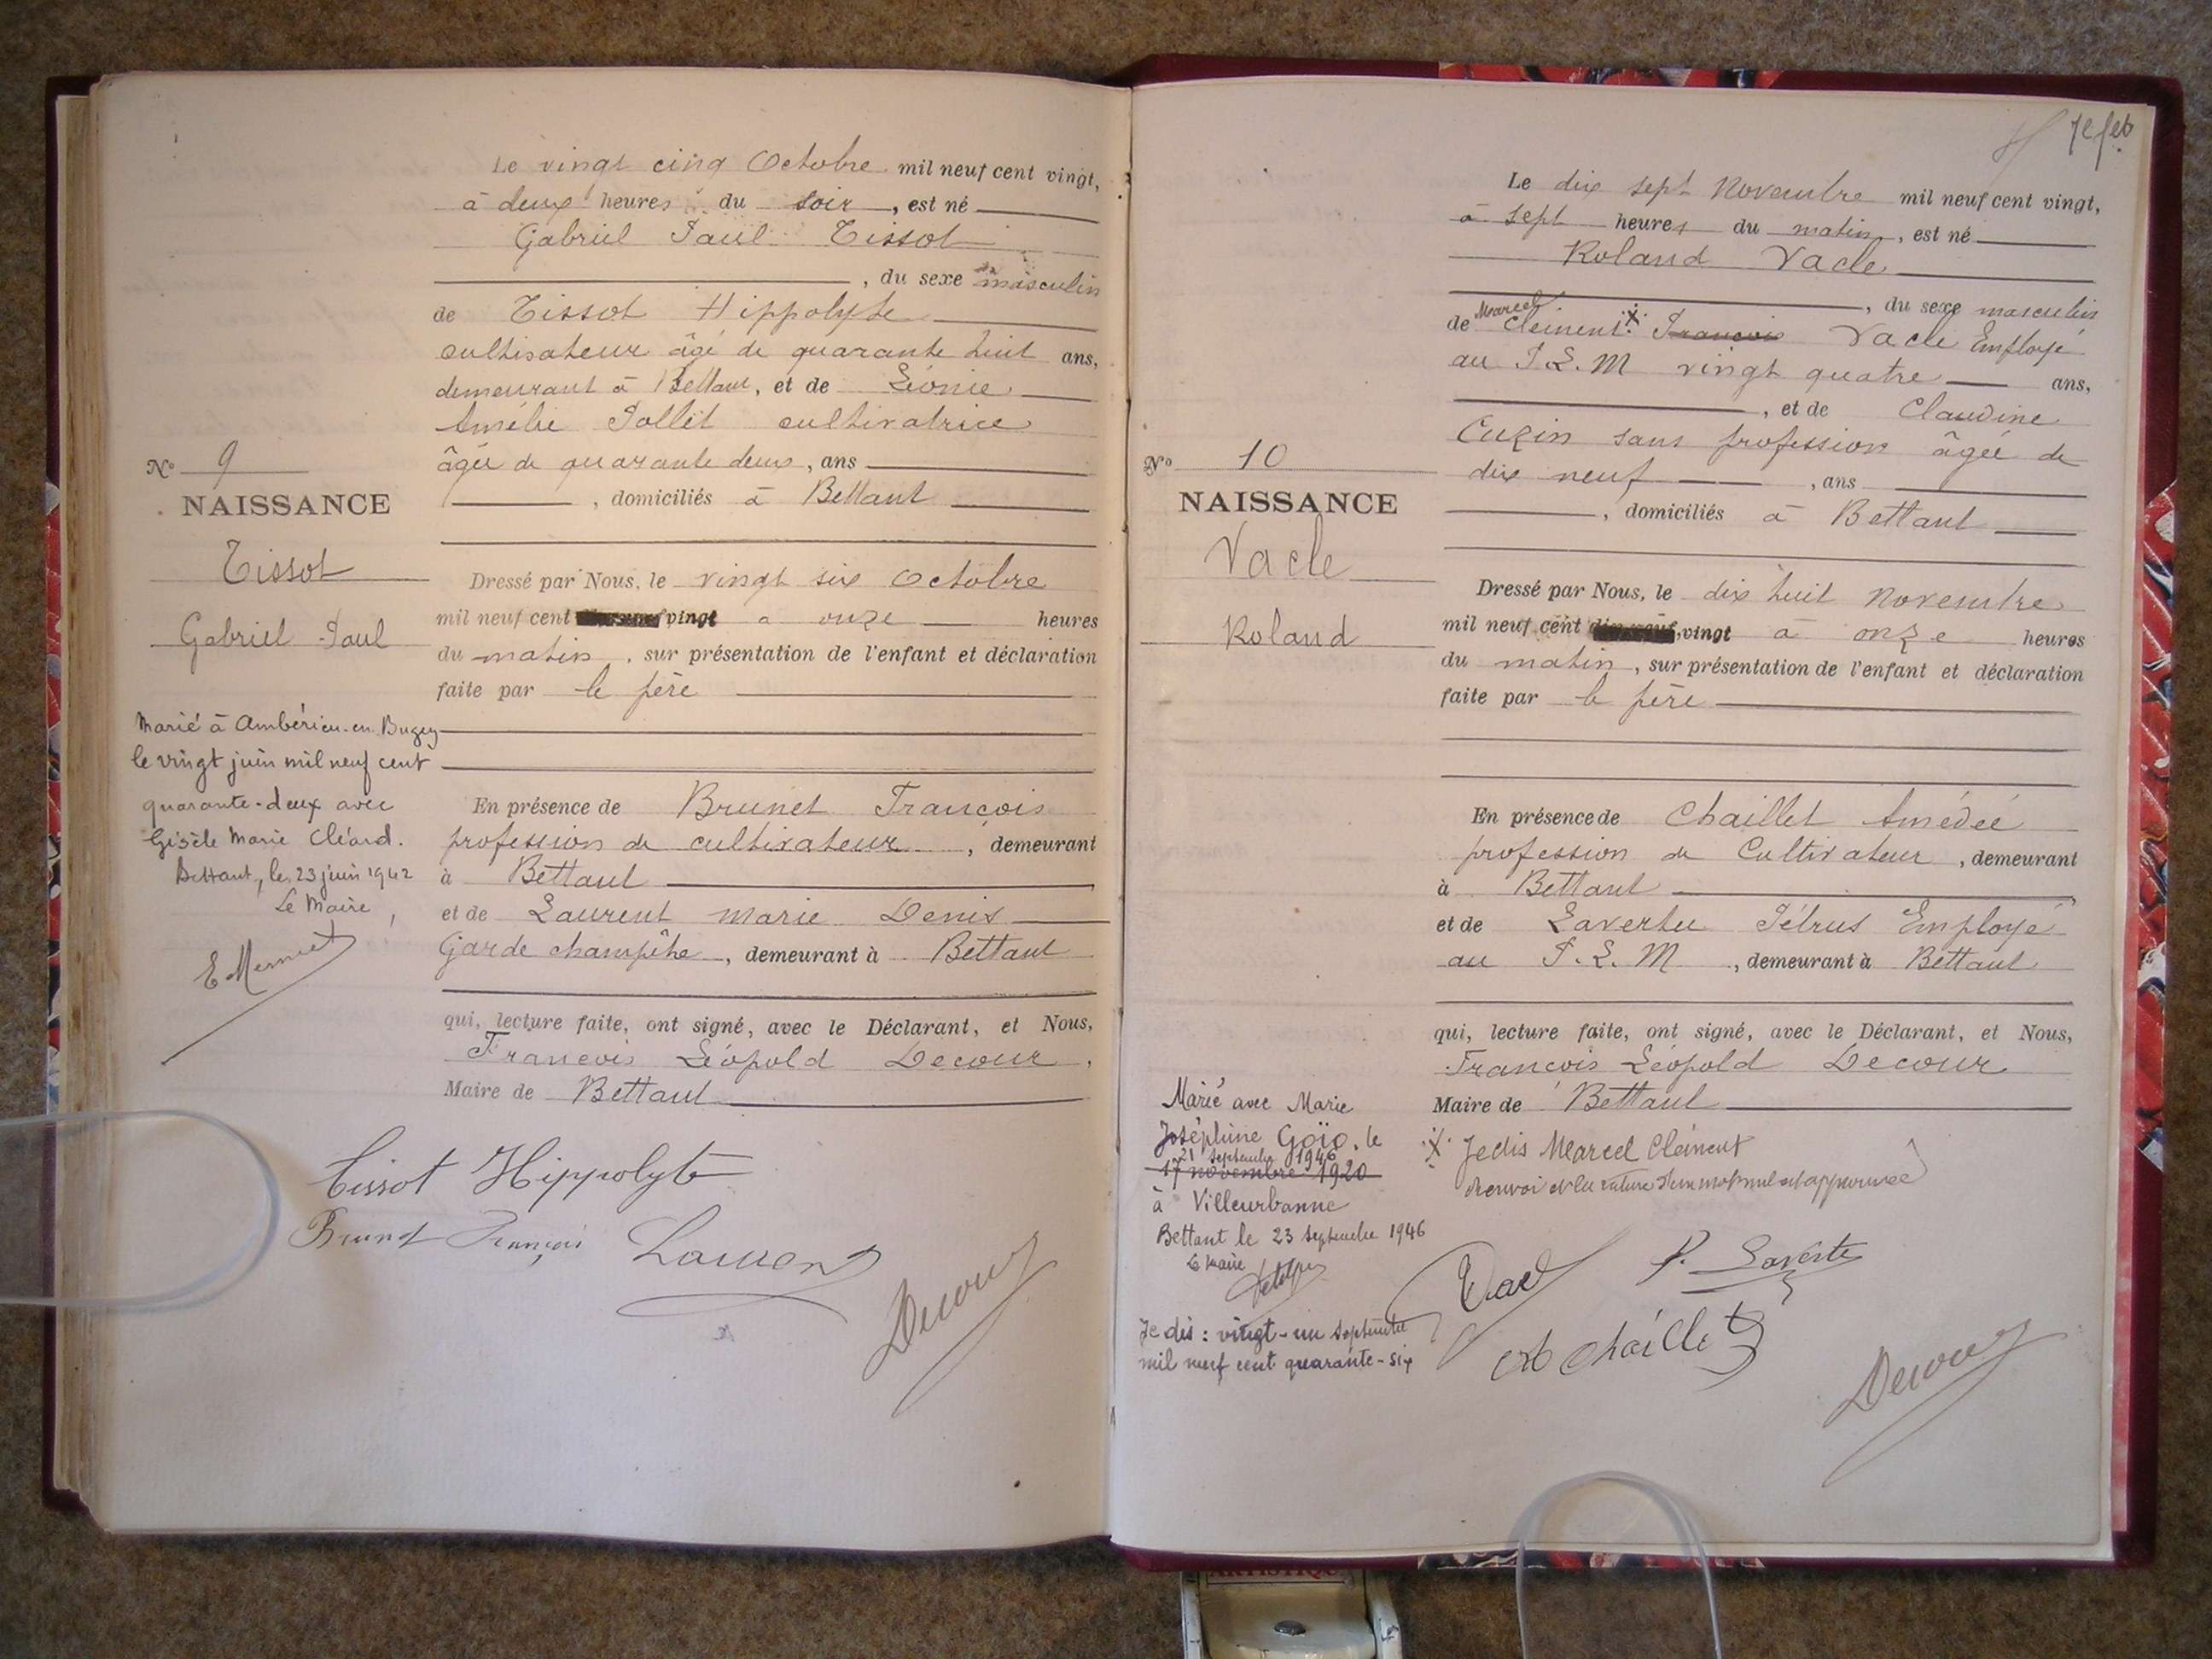 Le vingt cinq Octobre mil neuf cent vingt,
à deux heures du soir, est né
Gabriel Paul Tissot
, du sexe masculin
de Tissot Hippolyte
cultivateur âgé de quarante huit ans,
demeurant à Bettant, et de Léonie
Amélie Pollet cultivatrice
âgée de quarante deux, ans
, domiciliés à Bettant
Nº 9
NAISSANCE
Tissot
Gabriel Paul
Dressé par Nous, le vingt six Octobre
mil neuf cent vingt à onze heures
du matin, sur présentation de l'enfant et déclaration
faite par le père
Marié à Ambérieu-en-Bugey
le vingt juin mil neuf cent
quarante-deux avec
Gisèle Marie Cléard.
Bettant, le 23 juin 1942
Le Maire,
En présence de Brunet François
profession de cultivateur, demeurant
à Bettant
et de Laurent Marie Denis
Garde champêtre, demeurant à Bettant
qui, lecture faite, ont signé, avec le Déclarant, et Nous,
François Léopold Decour,
Maire de Bettant
Tissot Hippolyte
Brunet François Laurent
Decour
7e fet
Le dix sept Novembre mil neuf cent vingt,
à sept heures du matin, est né
Roland Vacle
, du sexe masculin
Marcel
de Clément X François Vacle Employé
au P.L.M vingt quatre ans,
, et de Claudine
Cuzin sans profession âgée de
dix neuf, ans
, domiciliés à Bettant
Nº 10
NAISSANCE
Vacle
Roland
Dressé par Nous, le dix huit Novembre
mil neuf cent vingt à onze heures
du matin, sur présentation de l'enfant et déclaration
faite par le père
En présence de Chaillet Amédée
profession de Cultivateur, demeurant
à Bettant
et de Laverte Pétrus Employé
au P.L.M, demeurant à Bettant
qui, lecture faite, ont signé, avec le Déclarant, et Nous,
François Léopold Decour
Maire de Bettant
Marié avec Marie
Joséphine Goïo, le
21 septembre 1946
17 novembre 1920
à Villeurbanne
Bettant le 23 septembre 1946
Le Maire
Je dis : vingt-un septembre
mil neuf cent quarante-six
X Je dis Marcel Clément
Renvoi et la rature d'un mot nul approuvée
Vacle P. Laverte
Chaillet
Decour